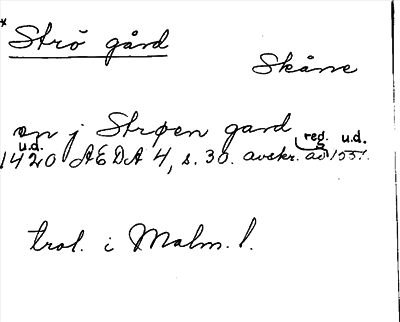 * Strö gård
Skåne
en j Strøen gard
reg. u.d.
u.d.
1420 AEDA 4, s. 30. avskr. av 1551.
trol. i Malm. l.